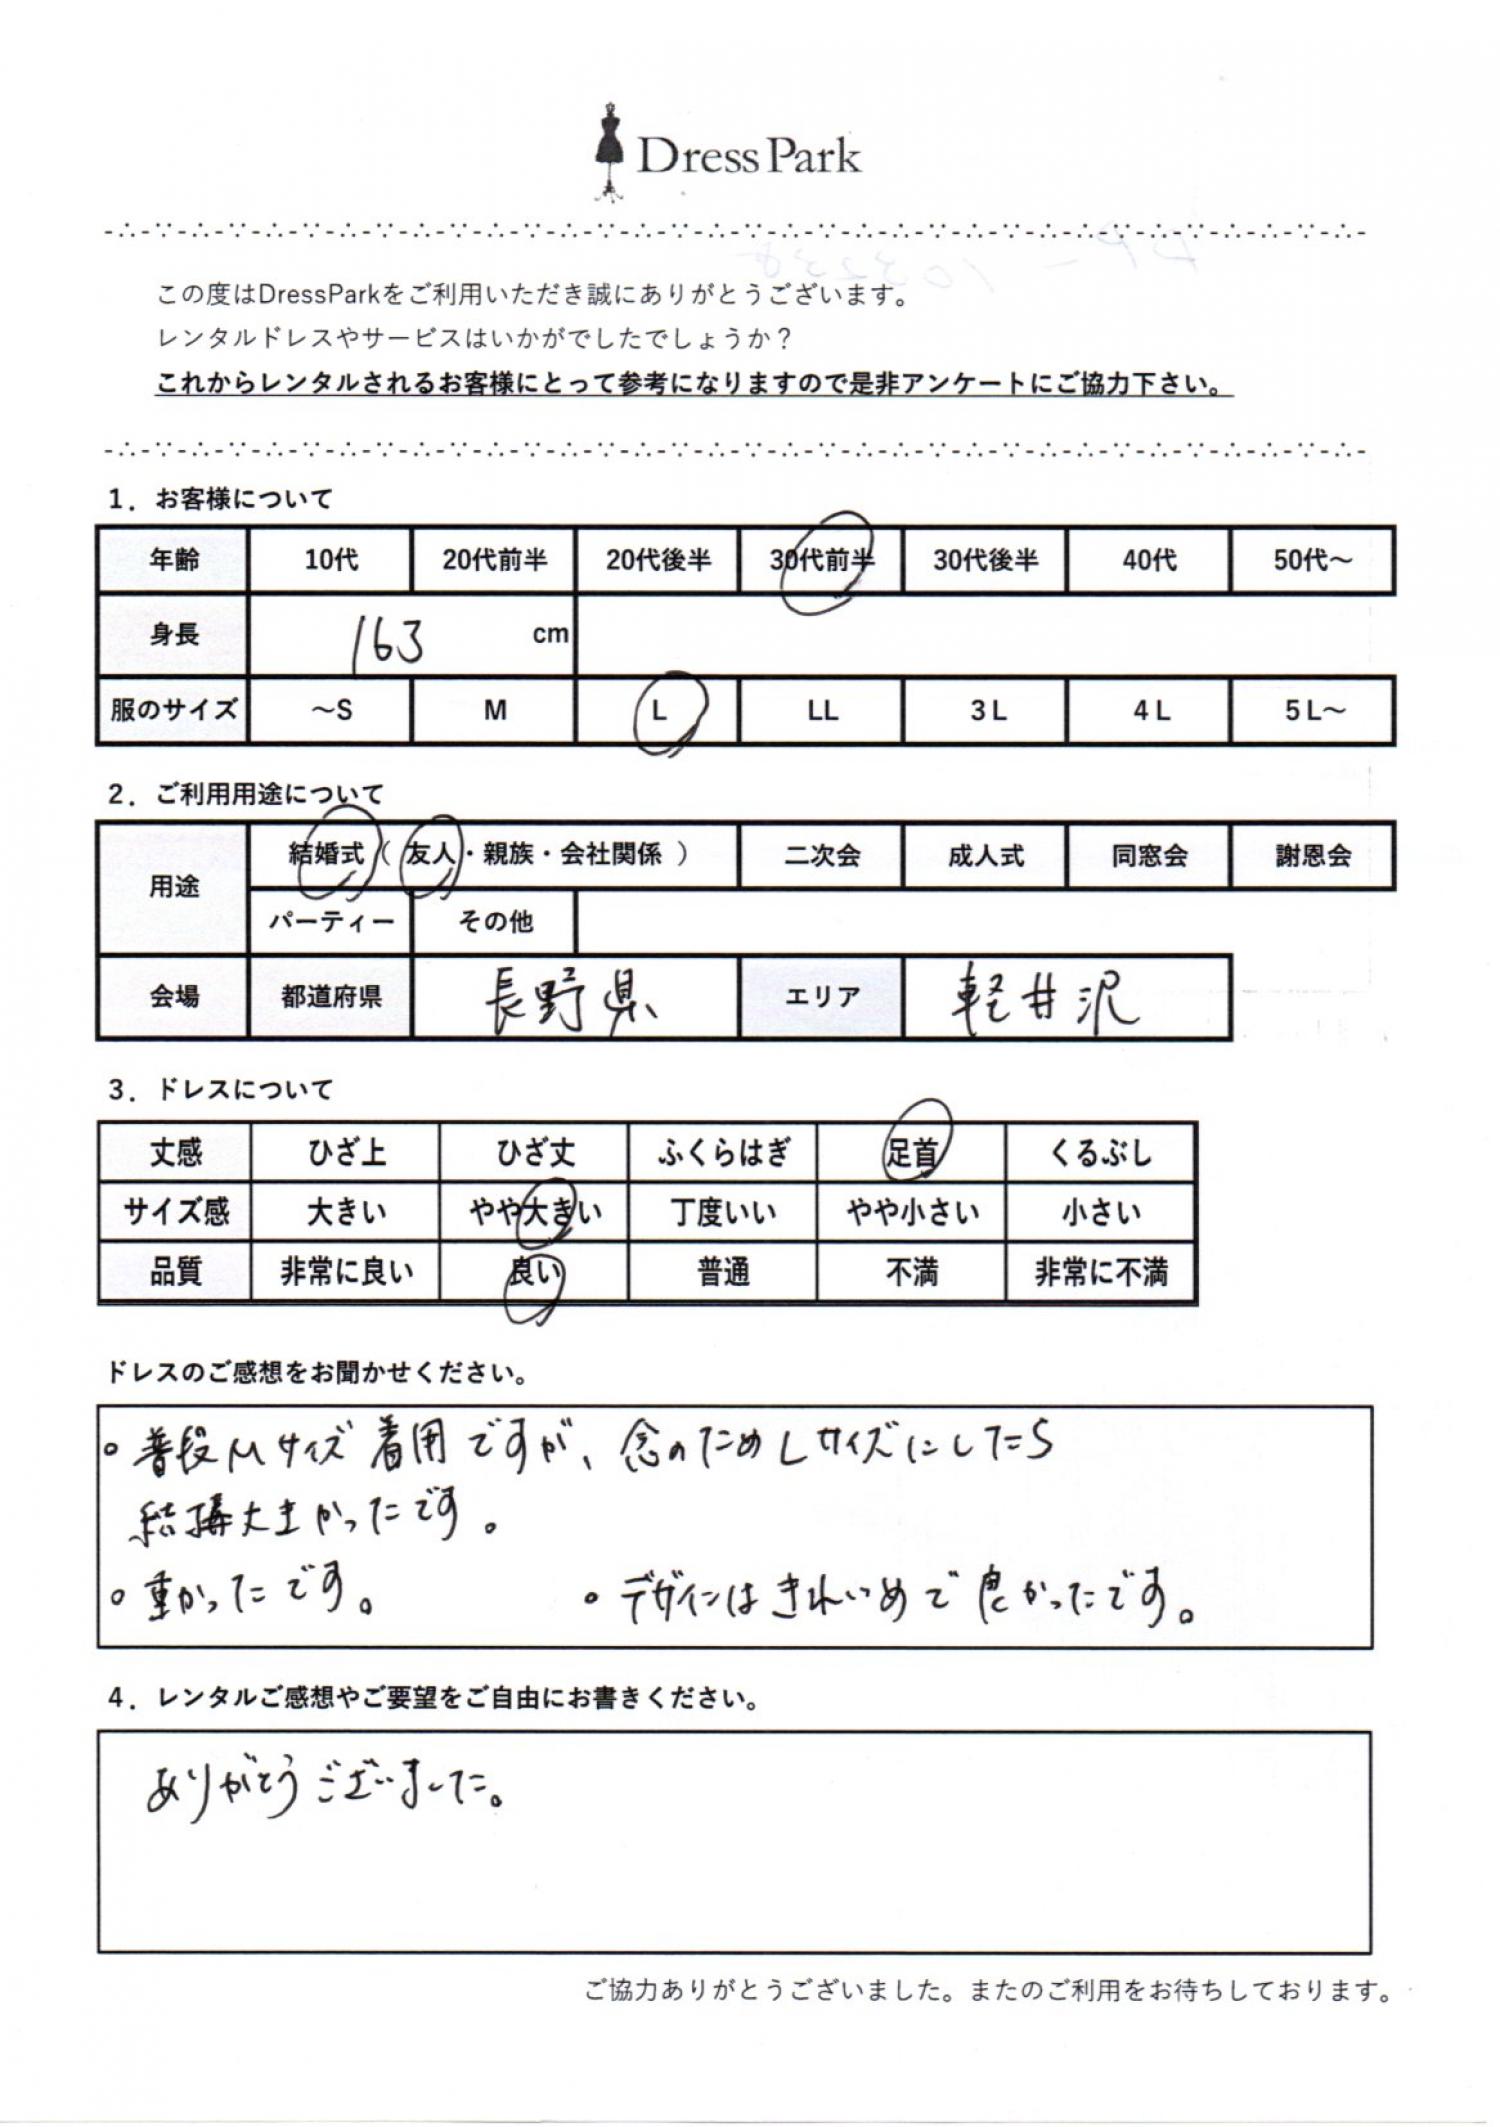 Dress Park
この度はDressParkをご利用いただき誠にありがとうございます。
レンタルドレスやサービスはいかがでしたでしょうか？
これからレンタルされるお客様にとって参考になりますので是非アンケートにご協力下さい。
1．お客様について
年齢 10代 20代前半 20代後半 30代前半 30代後半 40代 50代～
身長 163 cm
服のサイズ ～S M L LL 3L 4L 5L～
2．ご利用用途について
用途 結婚式（ 友人・親族・会社関係 ） 二次会 成人式 同窓会 謝恩会
パーティー その他
会場 都道府県 長野県 エリア 軽井沢
3．ドレスについて
丈感 ひざ上 ひざ丈 ふくらはぎ 足首 くるぶし
サイズ感 大きい やや大きい 丁度いい やや小さい 小さい
品質 非常に良い 良い 普通 不満 非常に不満
ドレスのご感想をお聞かせください。
。普段Mサイズ着用ですが、念のためLサイズにしたら
結構大きかったです。
。重かったです。 。デザインはきれいめで良かったです。
4．レンタルご感想やご要望をご自由にお書きください。
ありがとうございました。
ご協力ありがとうございました。またのご利用をお待ちしております。